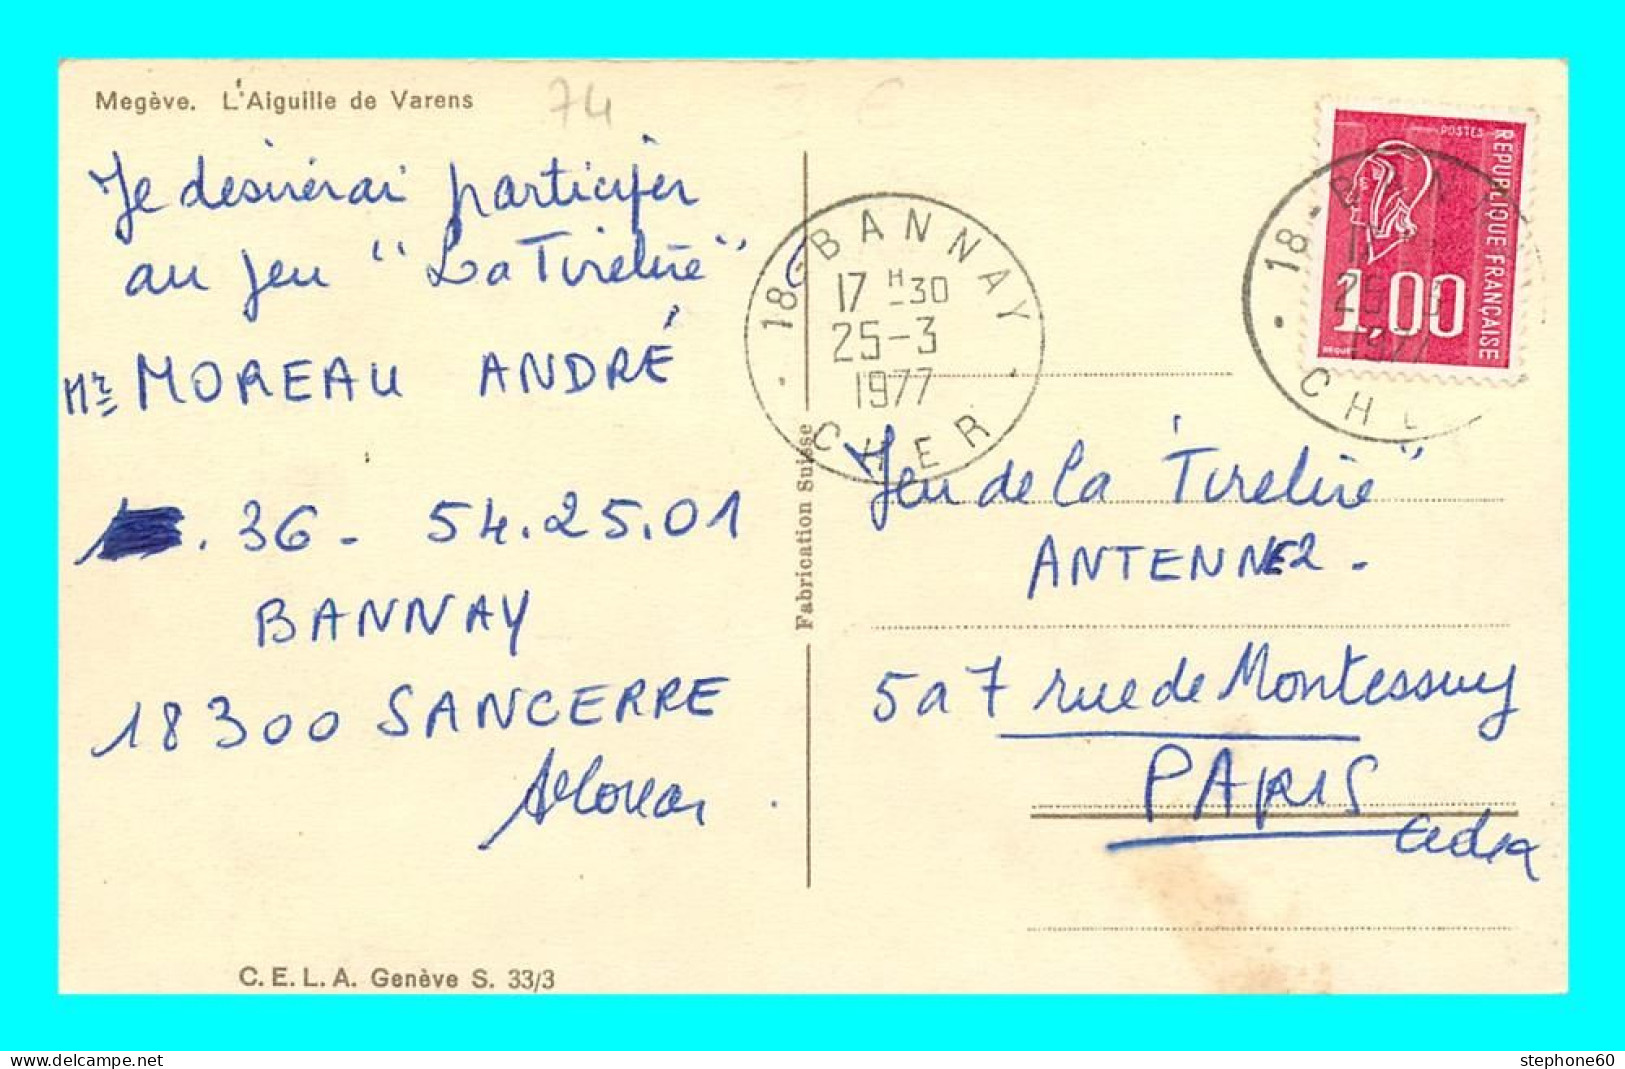 Megève. L'Aiguille de Varens
74
Je desirerai participer
au jeu "La Tirelire"
Mr MOREAU ANDRÉ
. 36 - 54.25.01
BANNAY
18300 SANCERRE
C.E.L.A. Genève S. 33/3
Fabrication Suisse
18 - BANNAY
17 H - 30
25 - 3
1977
CHER
POSTES
REPUBLIQUE FRANÇAISE
1,00
18 - BANN
25 - 3
1977
CHE
Jeu de la Tirelire"
ANTENNE 2 -
5 a 7 rue de Montessuy
PARIS
Cedex
stephone60